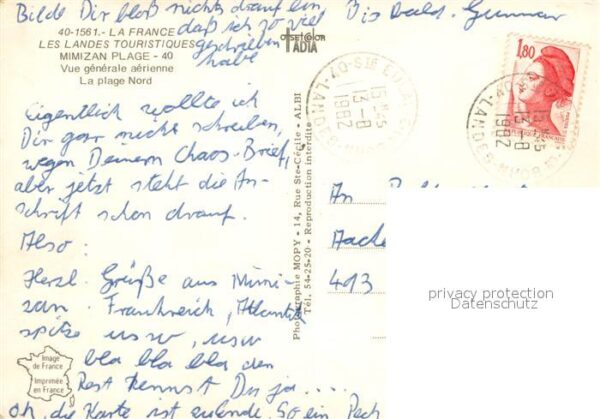 Bilde Dir bloß nichts drauf ein,
daß ich so viel
geschrieben
habe
Bis bald. Gunnar
40-1561.- LA FRANCE
LES LANDES TOURISTIQUES
MIMIZAN PLAGE - 40
Vue générale aérienne
La plage Nord
offset color
ADIA
Eigentlich wollte ich
Dir gar nichts schreiben,
wegen Deinem Chaos-Brief,
aber jetzt steht die An-
schrift schon drauf.
Also:
Herzl. Grüße aus Mimi-
zan. Frankreich, Atlantik
spitze usw, usw
bla bla bla den
Rest kennst Du ja....
oh, die Karte ist zuende. So ein Pech
Image
de France
Imprimée
en France
Photographie MOPY - 14, Rue Ste-Cécile - ALBI
Tél. 54-25-20 - Reproduction interdite
15H45
13-8
1982
LANDES
1,80
15H45
13-8
1982
LANDES
An
Aache
413
privacy protection
Datenschutz